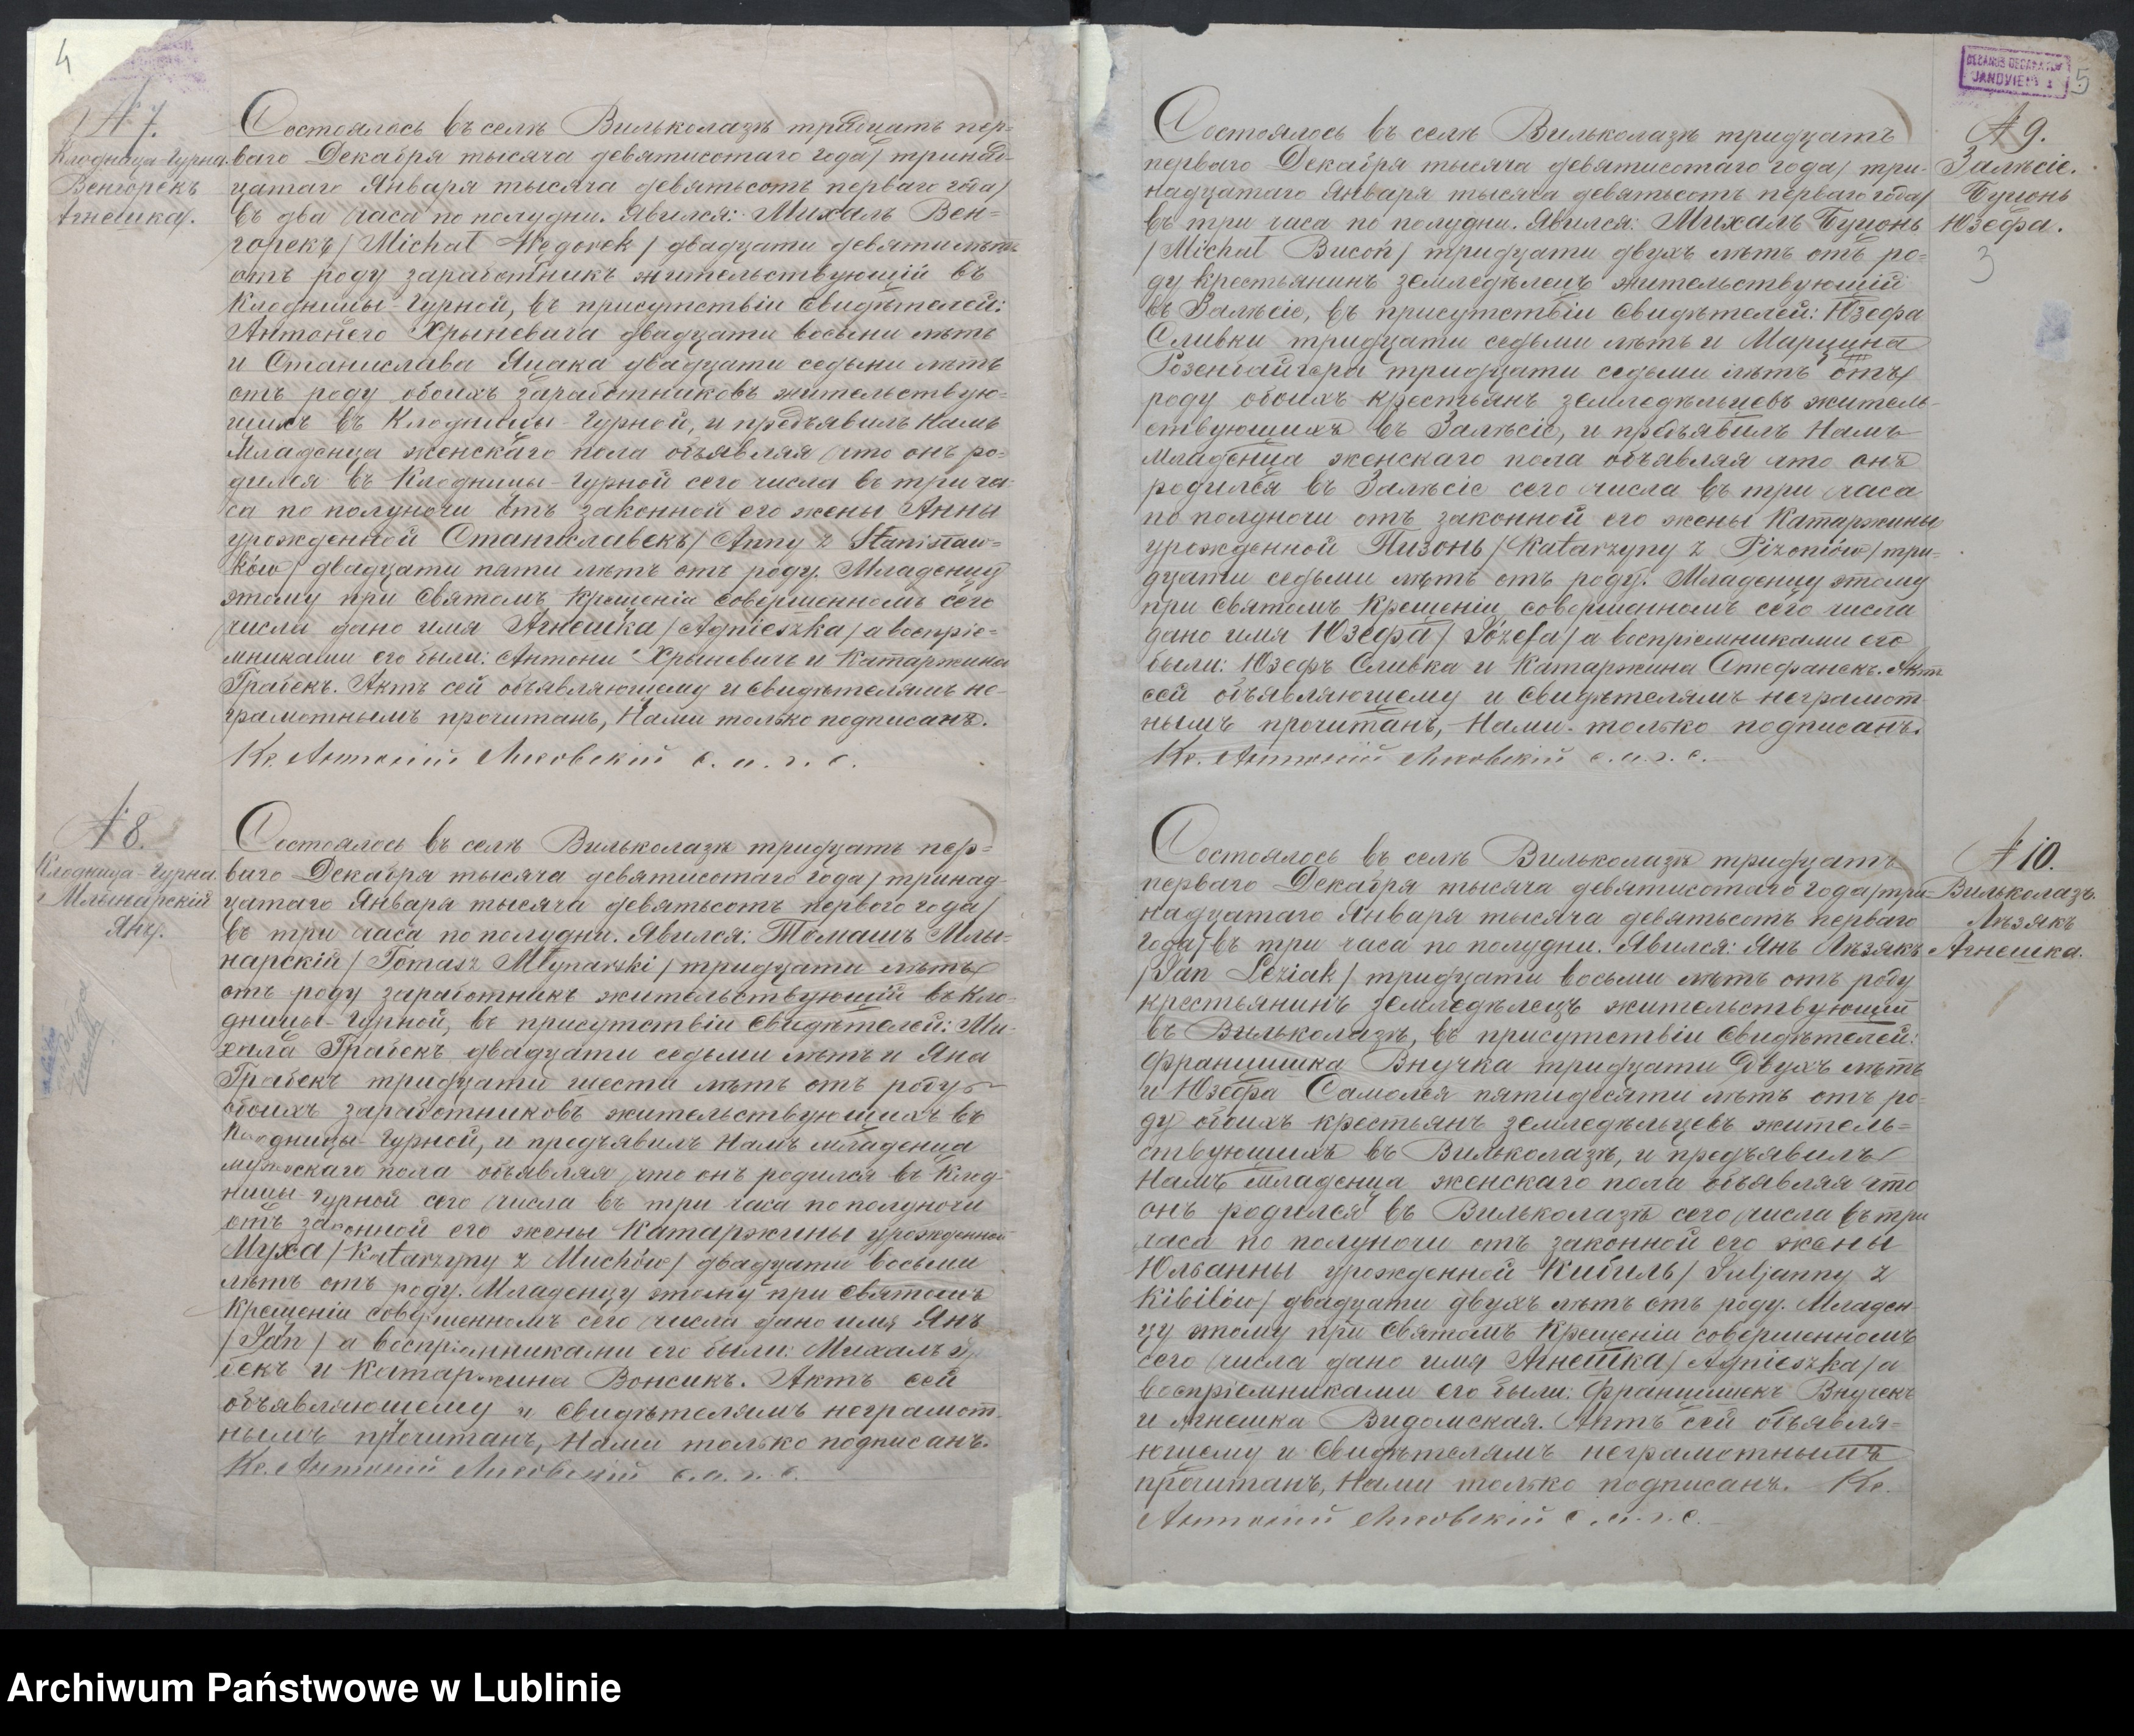 4
№ 7.
Клодница-Гурна.
Венгорекъ
Агнешка.
Состоялось въ селѣ Вильколазѣ тридцать пер-
ваго Декабря тысяча девятисотаго года/тринад-
цатаго Января тысяча девятьсотъ перваго года/
въ два часа по полудни. Явился: Михалъ Вен-
горекъ/Michał Węgorek/двадцати девяти лѣтъ
отъ роду заработникъ жительствующій въ
Клодницы-Гурной, въ присутствіи свидѣтелей:
Антонего Хрыневича двадцати восьми лѣтъ
и Станислава Яцака двадцати седьми лѣтъ
отъ роду обоихъ заработниковъ жительствую-
щихъ въ Клодницы-Гурной, и предъявилъ Намъ
младенца женскаго пола объявляя что онъ ро-
дился въ Клодницы-Гурной сего числа въ три ча-
са по полуночи отъ законной его жены Анны
урожденной Станиславекъ/Anny z Stanisław-
ków/двадцати пяти лѣтъ отъ роду. Младенцу
этому при Святомъ Крещеніи совершенномъ сего
числа дано имя Агнешка/Agnieszka/а воспріе-
мниками его были: Антони Хрыневичъ и Катаржина
Грабекъ. Актъ сей объявляющему и свидѣтелямъ не-
грамотнымъ прочитанъ, Нами только подписанъ.
Кс. Антоній с. и. г. с.
№ 8.
Клодница-Гурна.
Млынарскій
Янъ.
Состоялось въ селѣ Вильколазѣ тридцать пер-
ваго Декабря тысяча девятисотаго года/тринад-
цатаго Января тысяча девятьсотъ перваго года/
въ три часа по полудни. Явился: Томашъ Млы-
нарскій/Tomasz Młynarski/тридцати лѣтъ
отъ роду заработникъ жительствующій въ Кло-
дницы-Гурной, въ присутствіи свидѣтелей: Ми-
хала Грабекъ двадцати седьми лѣтъ и Яна
Грабекъ тридцати шести лѣтъ отъ роду
обоихъ заработниковъ жительствующихъ въ
Клодницы-Гурной, и предъявилъ Намъ младенца
мужескаго пола объявляя что онъ родился въ Клод-
ницы-Гурной сего числа въ три часа по полуночи
отъ законной его жены Катаржины урожденной
Муха/Katarzyny z Muchów/двадцати восьми
лѣтъ отъ роду. Младенцу этому при Святомъ
Крещеніи совершенномъ сего числа дано имя Янъ
/Jan/а воспріемниками его были: Михалъ Гра-
бекъ и Катаржина Вонсикъ. Актъ сей
объявляющему и свидѣтелямъ неграмот-
нымъ прочитанъ, Нами только подписанъ.
Кс. Антоній с. и. г. с.
DECANUS DECANATUS
JANOVIEN
5
№ 9.
Залѣсіе.
Буцонь
Юзефа.
3
Состоялось въ селѣ Вильколазѣ тридцать
перваго Декабря тысяча девятисотаго года/три-
надцатаго Января тысяча девятьсотъ перваго года/
въ три часа по полудни. Явился: Михалъ Буцонь
/Michał Bucoń/тридцати двухъ лѣтъ отъ ро-
ду крестьянинъ земледѣлецъ жительствующій
въ Залѣсіе, въ присутствіи свидѣтелей: Юзефа
Сливки тридцати седьми лѣтъ и Марцина
Розенбайгера тридцати седьми лѣтъ отъ
роду обоихъ крестьянъ земледѣльцевъ житель-
ствующихъ въ Залѣсіе, и предъявилъ Намъ
младенца женскаго пола объявляя что онъ
родился въ Залѣсіе сего числа въ три часа
по полуночи отъ законной его жены Катаржины
урожденной Пизонь/Katarzyny z Pizoniów/три-
дцати седьми лѣтъ отъ роду. Младенцу этому
при Святомъ Крещеніи совершенномъ сего числа
дано имя Юзефа/Józefa/а воспріемниками его
были: Юзефъ Сливка и Катаржина Стефанекъ. Актъ
сей объявляющему и свидѣтелямъ неграмот-
нымъ прочитанъ, Нами только подписанъ.
Кс. Антоній с. и. г. с.
№ 10.
Вильколазъ.
Лѣзякъ
Агнешка.
Состоялось въ селѣ Вильколазѣ тридцать
перваго Декабря тысяча девятисотаго года/три-
надцатаго Января тысяча девятьсотъ перваго
года/въ три часа по полудни. Явился: Янъ Лѣзякъ
/Jan Leziak/тридцати восьми лѣтъ отъ роду
крестьянинъ земледѣлецъ жительствующій
въ Вильколазѣ, въ присутствіи свидѣтелей:
Францишка Внучка тридцати двухъ лѣтъ
и Юзефа Самолея пятидесяти лѣтъ отъ ро-
ду обоихъ крестьянъ земледѣльцевъ житель-
ствующихъ въ Вильколазѣ, и предъявилъ
Намъ младенца женскаго пола объявляя что
онъ родился въ Вильколазѣ сего числа въ три
часа по полуночи отъ законной его жены
Юльянны урожденной Кибиль/Juljanny z
Kibilów/двадцати двухъ лѣтъ отъ роду. Младен-
цу этому при Святомъ Крещеніи совершенномъ
сего числа дано имя Агнешка/Agnieszka/а
воспріемниками его были: Францишекъ Внучекъ
и Агнешка Видомская. Актъ сей объявля-
ющему и свидѣтелямъ неграмотнымъ
прочитанъ, Нами только подписанъ. Кс.
Антоній с. и. г. с.
Archiwum Państwowe w Lublinie